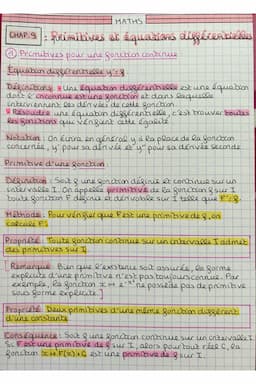 MATHS
CHAP.9 : Primitives et Équations différentielles
① Primitives pour une fonction continue
Équation différentielle y'=f
Définitions : Une équation différentielle est une équation
dont l'inconnue est une fonction et dans laquelle
interviennent les dérivées de cette fonction.
Résoudre une équation différentielle, c'est trouver toutes
les fonctions que vérifient cette égalité.
Notation : On écrira en général y à la place de la fonction
concernée, y' pour sa dérivée et y'' pour sa dérivée seconde
Primitive d'une fonction
Définition : Soit f une fonction définie et continue sur un
intervalle I. On appelle primitive de la fonction f sur I
toute fonction F définie et dérivable sur I telle que F'=f.
Méthode : Pour vérifier que F est une primitive de f, on
calcule F'.
Propriété : Toute fonction continue sur un intervalle I admet
des primitives sur I
[Remarque : Bien que l'existence soit assurée, la forme
explicite d'une primitive n'est pas toujours connue. Par
exemple, la fonction x ↦ e^-x² ne possède pas de primitive
sous forme explicite.]
Propriété : Deux primitives d'une même fonction diffèrent
d'une constante
Conséquence : Soit f une fonction continue sur un intervalle I.
Si F est une primitive de f sur I, alors pour tout réel C, la
fonction x ↦ F(x)+C est une primitive de f sur I.